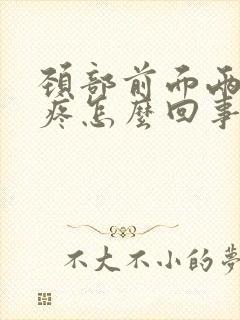 頚部前而兩
疼怎麼回事
不大不小的夢